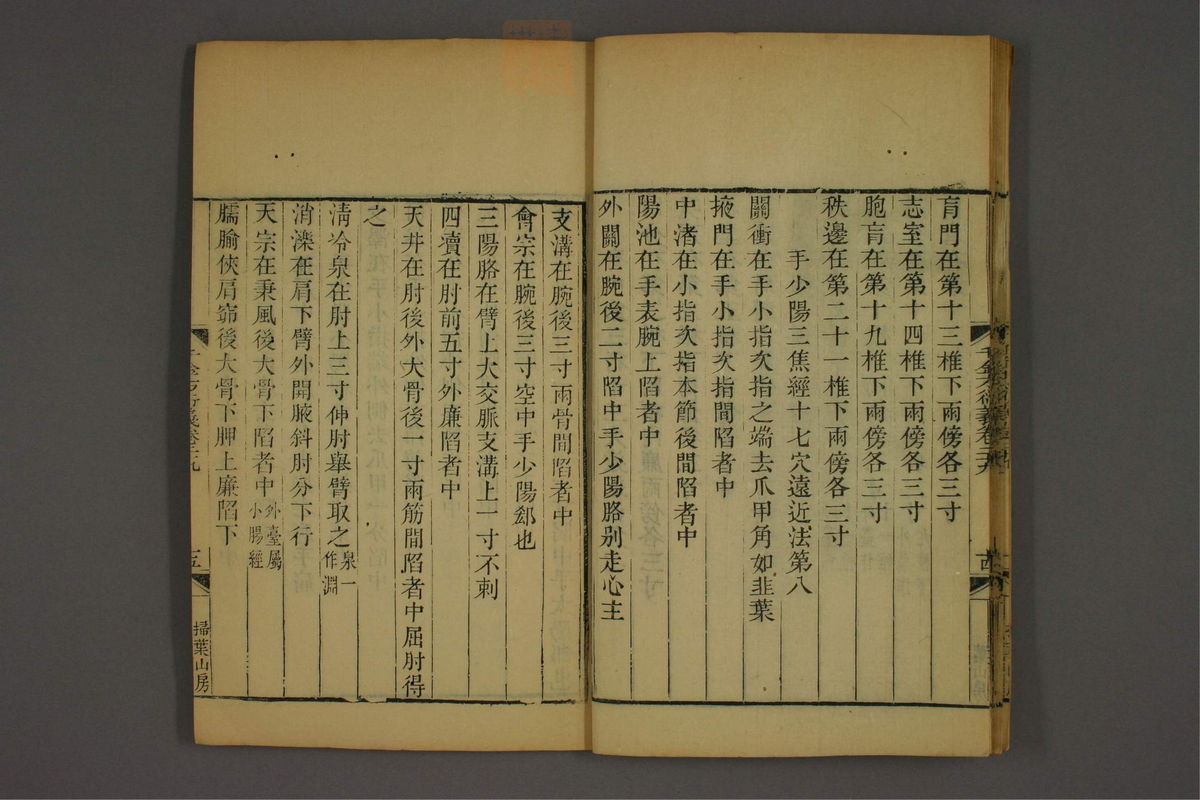 肓門在第十三椎下兩傍各三寸
志室在第十四椎下兩傍各三寸
胞肓在第十九椎下兩傍各三寸
秩邊在第二十一椎下兩傍各三寸
手少陽三焦經十七穴遠近法第八
關衝在手小指次指之端去爪甲角如韭葉
掖門在手小指次指間陷者中
中渚在小指次指本節後間陷者中
陽池在手表腕上陷者中
外關在腕後二寸陷中手少陽胳别走心主
支溝在腕後三寸兩骨間陷者中
會宗在腕後三寸空中手少陽郄也
三陽胳在臂上大交脈支溝上一寸不刺
四瀆在肘前五寸外廉陷者中
天井在肘後外大骨後一寸兩筋間陷者中屈肘得
之
淸冷泉在肘上三寸伸肘舉臂取之泉一作淵
消濼在肩下臂外開腋斜肘分下行
天宗在秉風後大骨下陷者中外臺屬小腸經
臑腧俠肩窌後大骨下胛上廉陷下
千金方衍義卷二十九
五
掃葉山房